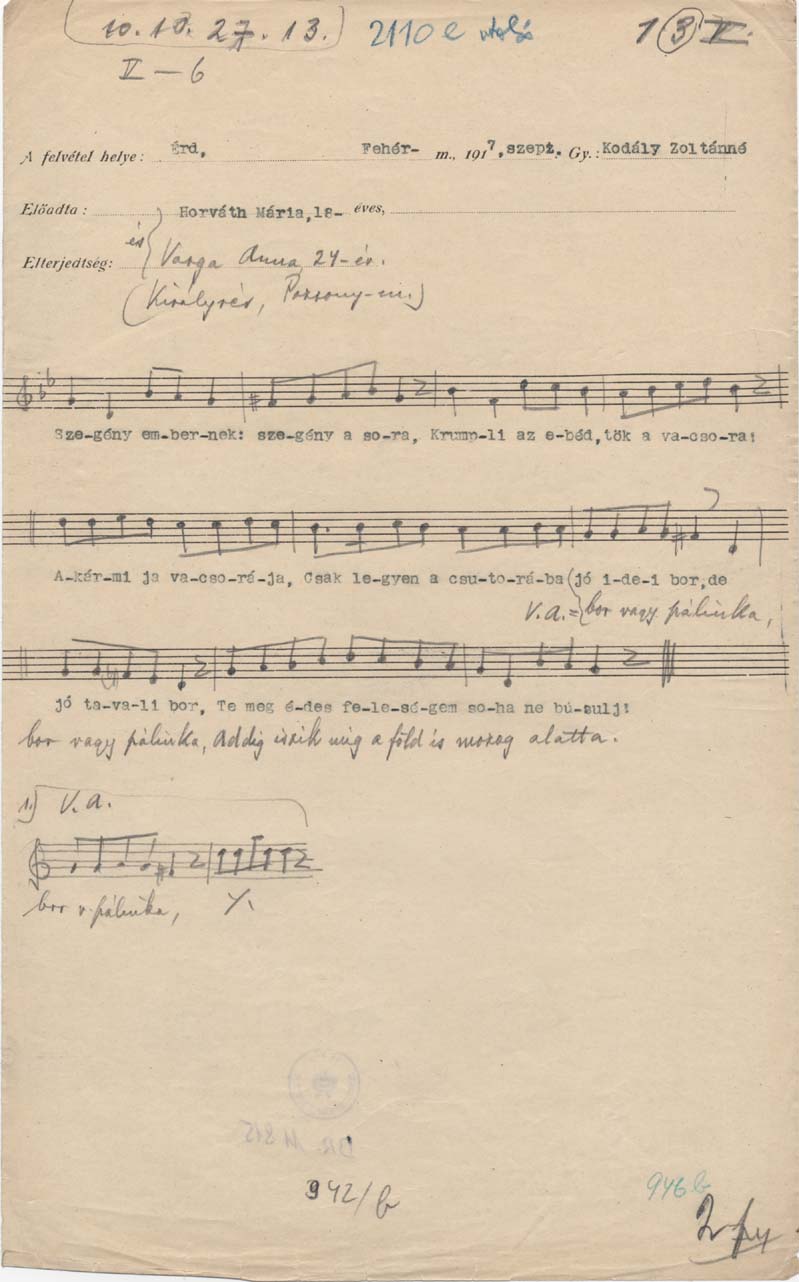 10. 10. 27. 13.) 2110 e utolsó 1 (3) V.
V — 6
A felvétel helye: Érd, Fehér- m., 1917, szept. Gy.: Kodály Zoltánné
Előadta: Horváth Mária, 18- éves,
Elterjedtség: és Varga Anna 24-év.
(Királyrév, Pozsony-m.)
Sze-gény em-ber-nek: sze-gény a so-ra, Krump-li az e-béd, tök a va-cso-ra!
A-kár-mi ja va-cso-rá-ja, Csak le-gyen a csu-to-rá-ba jó i-de-i bor, de
V.A. = bor vagy pálinka,
jó ta-va-li bor, Te meg é-des fe-le-sé-gem so-ha ne bú-sulj!
bor vagy pálinka, Addig iszik míg a föld is mozog alatta.
1.) V.A.
bor v. pálinka,
DR. M 815
942/b
946 b